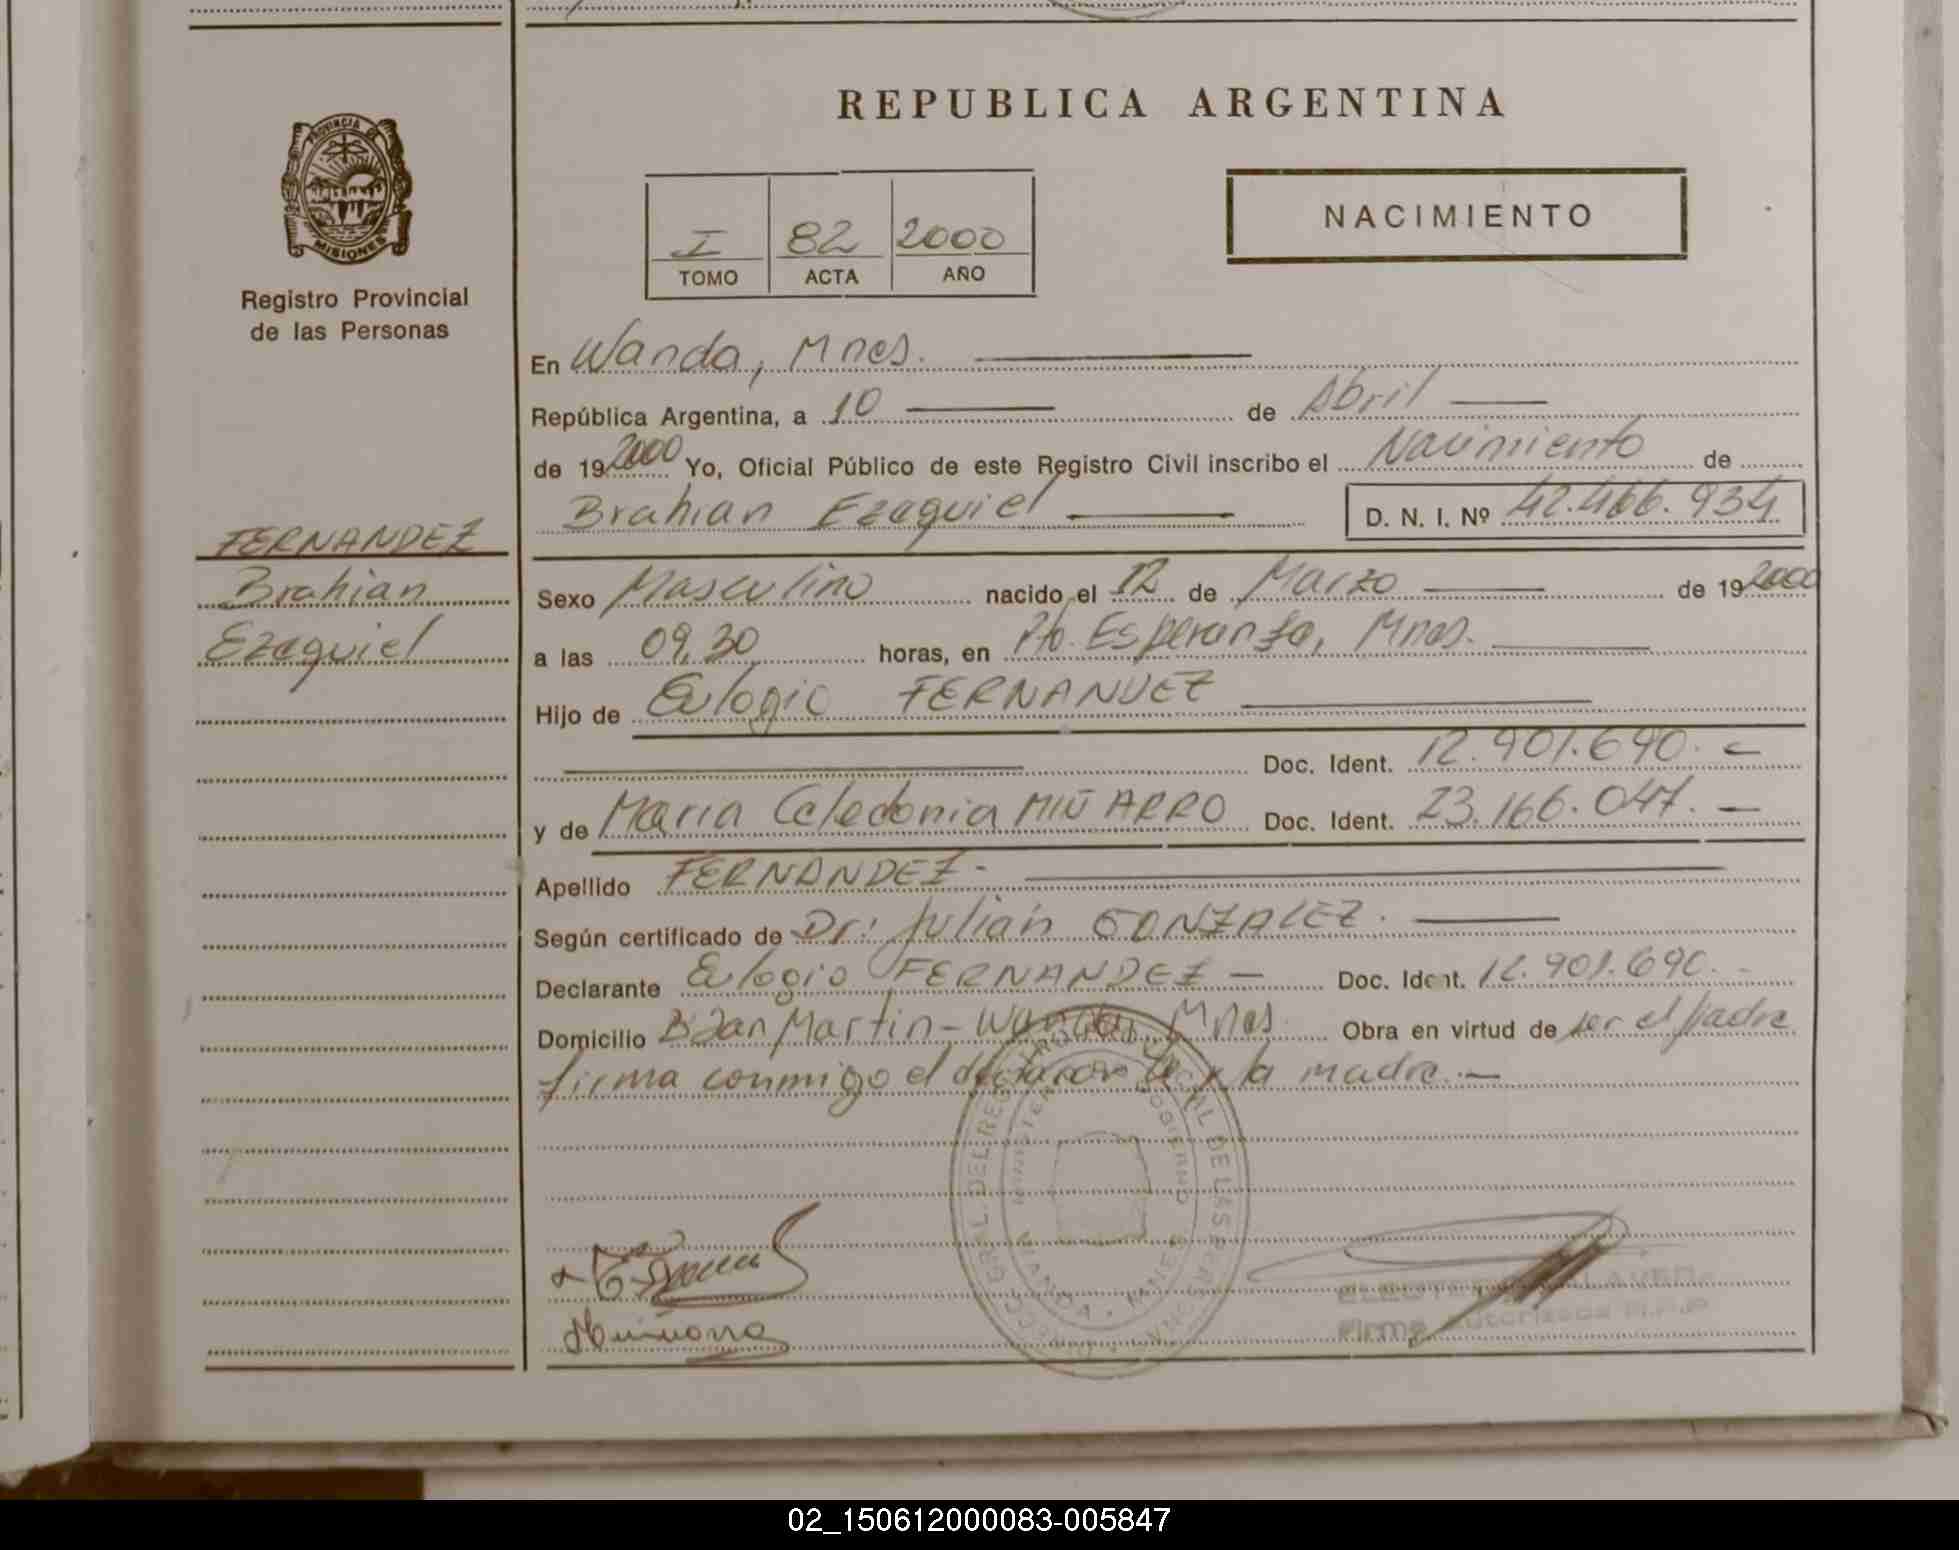 REPUBLICA ARGENTINA
PROVINCIA DE
MISIONES
Registro Provincial
de las Personas
I 82 2000
TOMO ACTA AÑO
NACIMIENTO
En Wanda, Mnes.
República Argentina, a 10 de Abril
de 19 2000 Yo, Oficial Público de este Registro Civil inscribo el Nacimiento de
Brahian Ezequiel D. N. I. Nº 42.466.934
FERNANDEZ
Brahian
Ezequiel
Sexo Masculino nacido el 12 de Marzo de 19 2000
a las 09,30 horas, en Pto. Esperanza, Mnes.
Hijo de Eulogio FERNANDEZ
Doc. Ident. 12.901.690.
y de María Celedonia MIÑARRO Doc. Ident. 23.166.047.
Apellido FERNANDEZ.-
Según certificado de Dr: Julián GONZALEZ.
Declarante Eulogio FERNANDEZ - Doc. Ident. 12.901.690.
Domicilio Bº San Martin - Wanda, Mnes. Obra en virtud de ser el padre
firma conmigo el declarante y la madre.-
WANDA - MNES
Firma Autorizada R.P.P
02_150612000083-005847